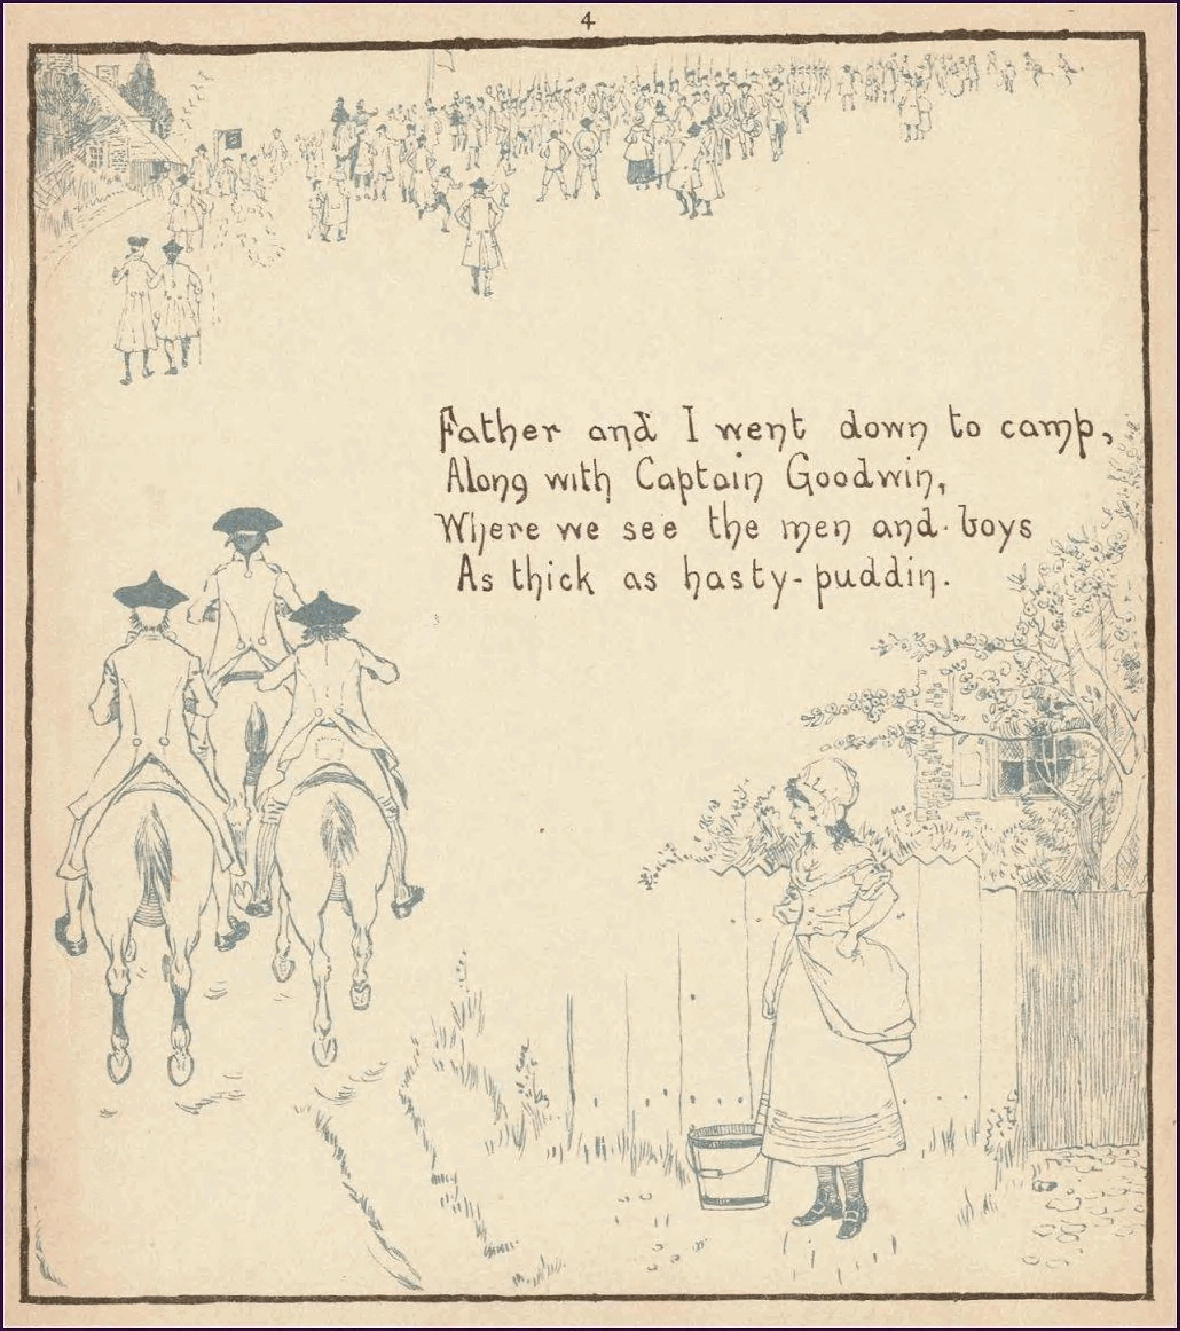 4
Father and I went down to camp,
Along with Captain Goodwin,
Where we see the men and boys
As thick as hasty-puddin.